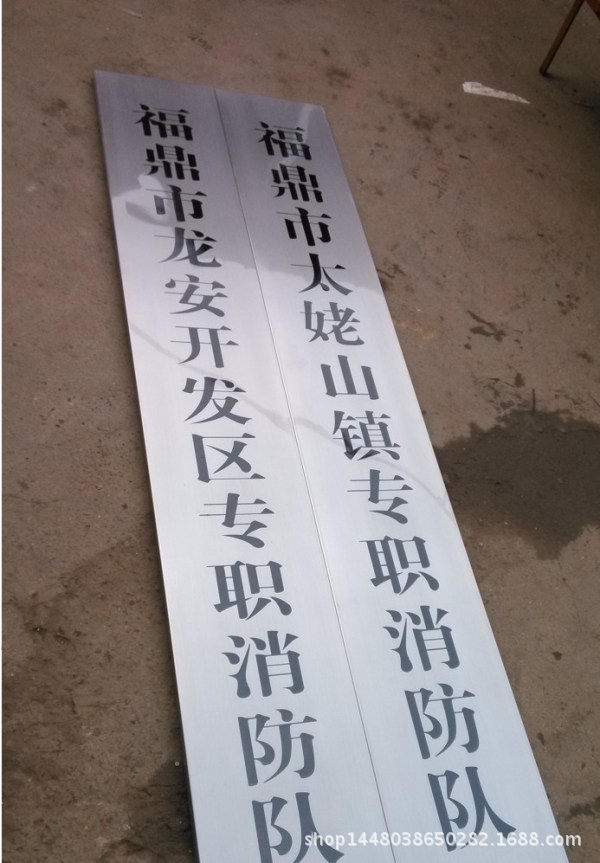 福鼎市龙安开发区专职消防队
福鼎市太姥山镇专职消防队
shop1448038650282.1688.com